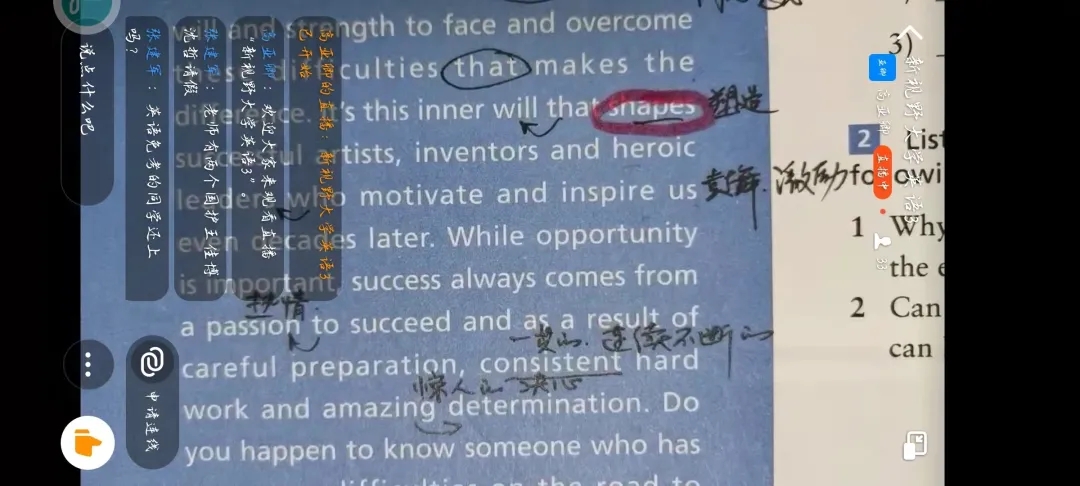 will and strength to face and overcome
these difficulties that makes the
difference. It's this inner will that shapes
塑造
successful artists, inventors and heroic
leaders who motivate and inspire us
激励
even decades later. While opportunity
is important, success always comes from
热情
a passion to succeed and as a result of
一贯的 连续不断的
careful preparation, consistent hard
惊人的 决心
work and amazing determination. Do
you happen to know someone who has
difficulties on the road to
3)
2 List
followi
1 Why
the e
2 Can
can
高亚卿的直播：新视野大学英语3
已开始
高亚卿：欢迎大家来观看直播
“新视野大学英语3”。
张建军：老师有两个国护王佳博
沈哲请假
张建军：英语免考的同学还上
吗？
说点什么吧
申请连线
新视野大学英语3
亚卿
高亚卿
直播中